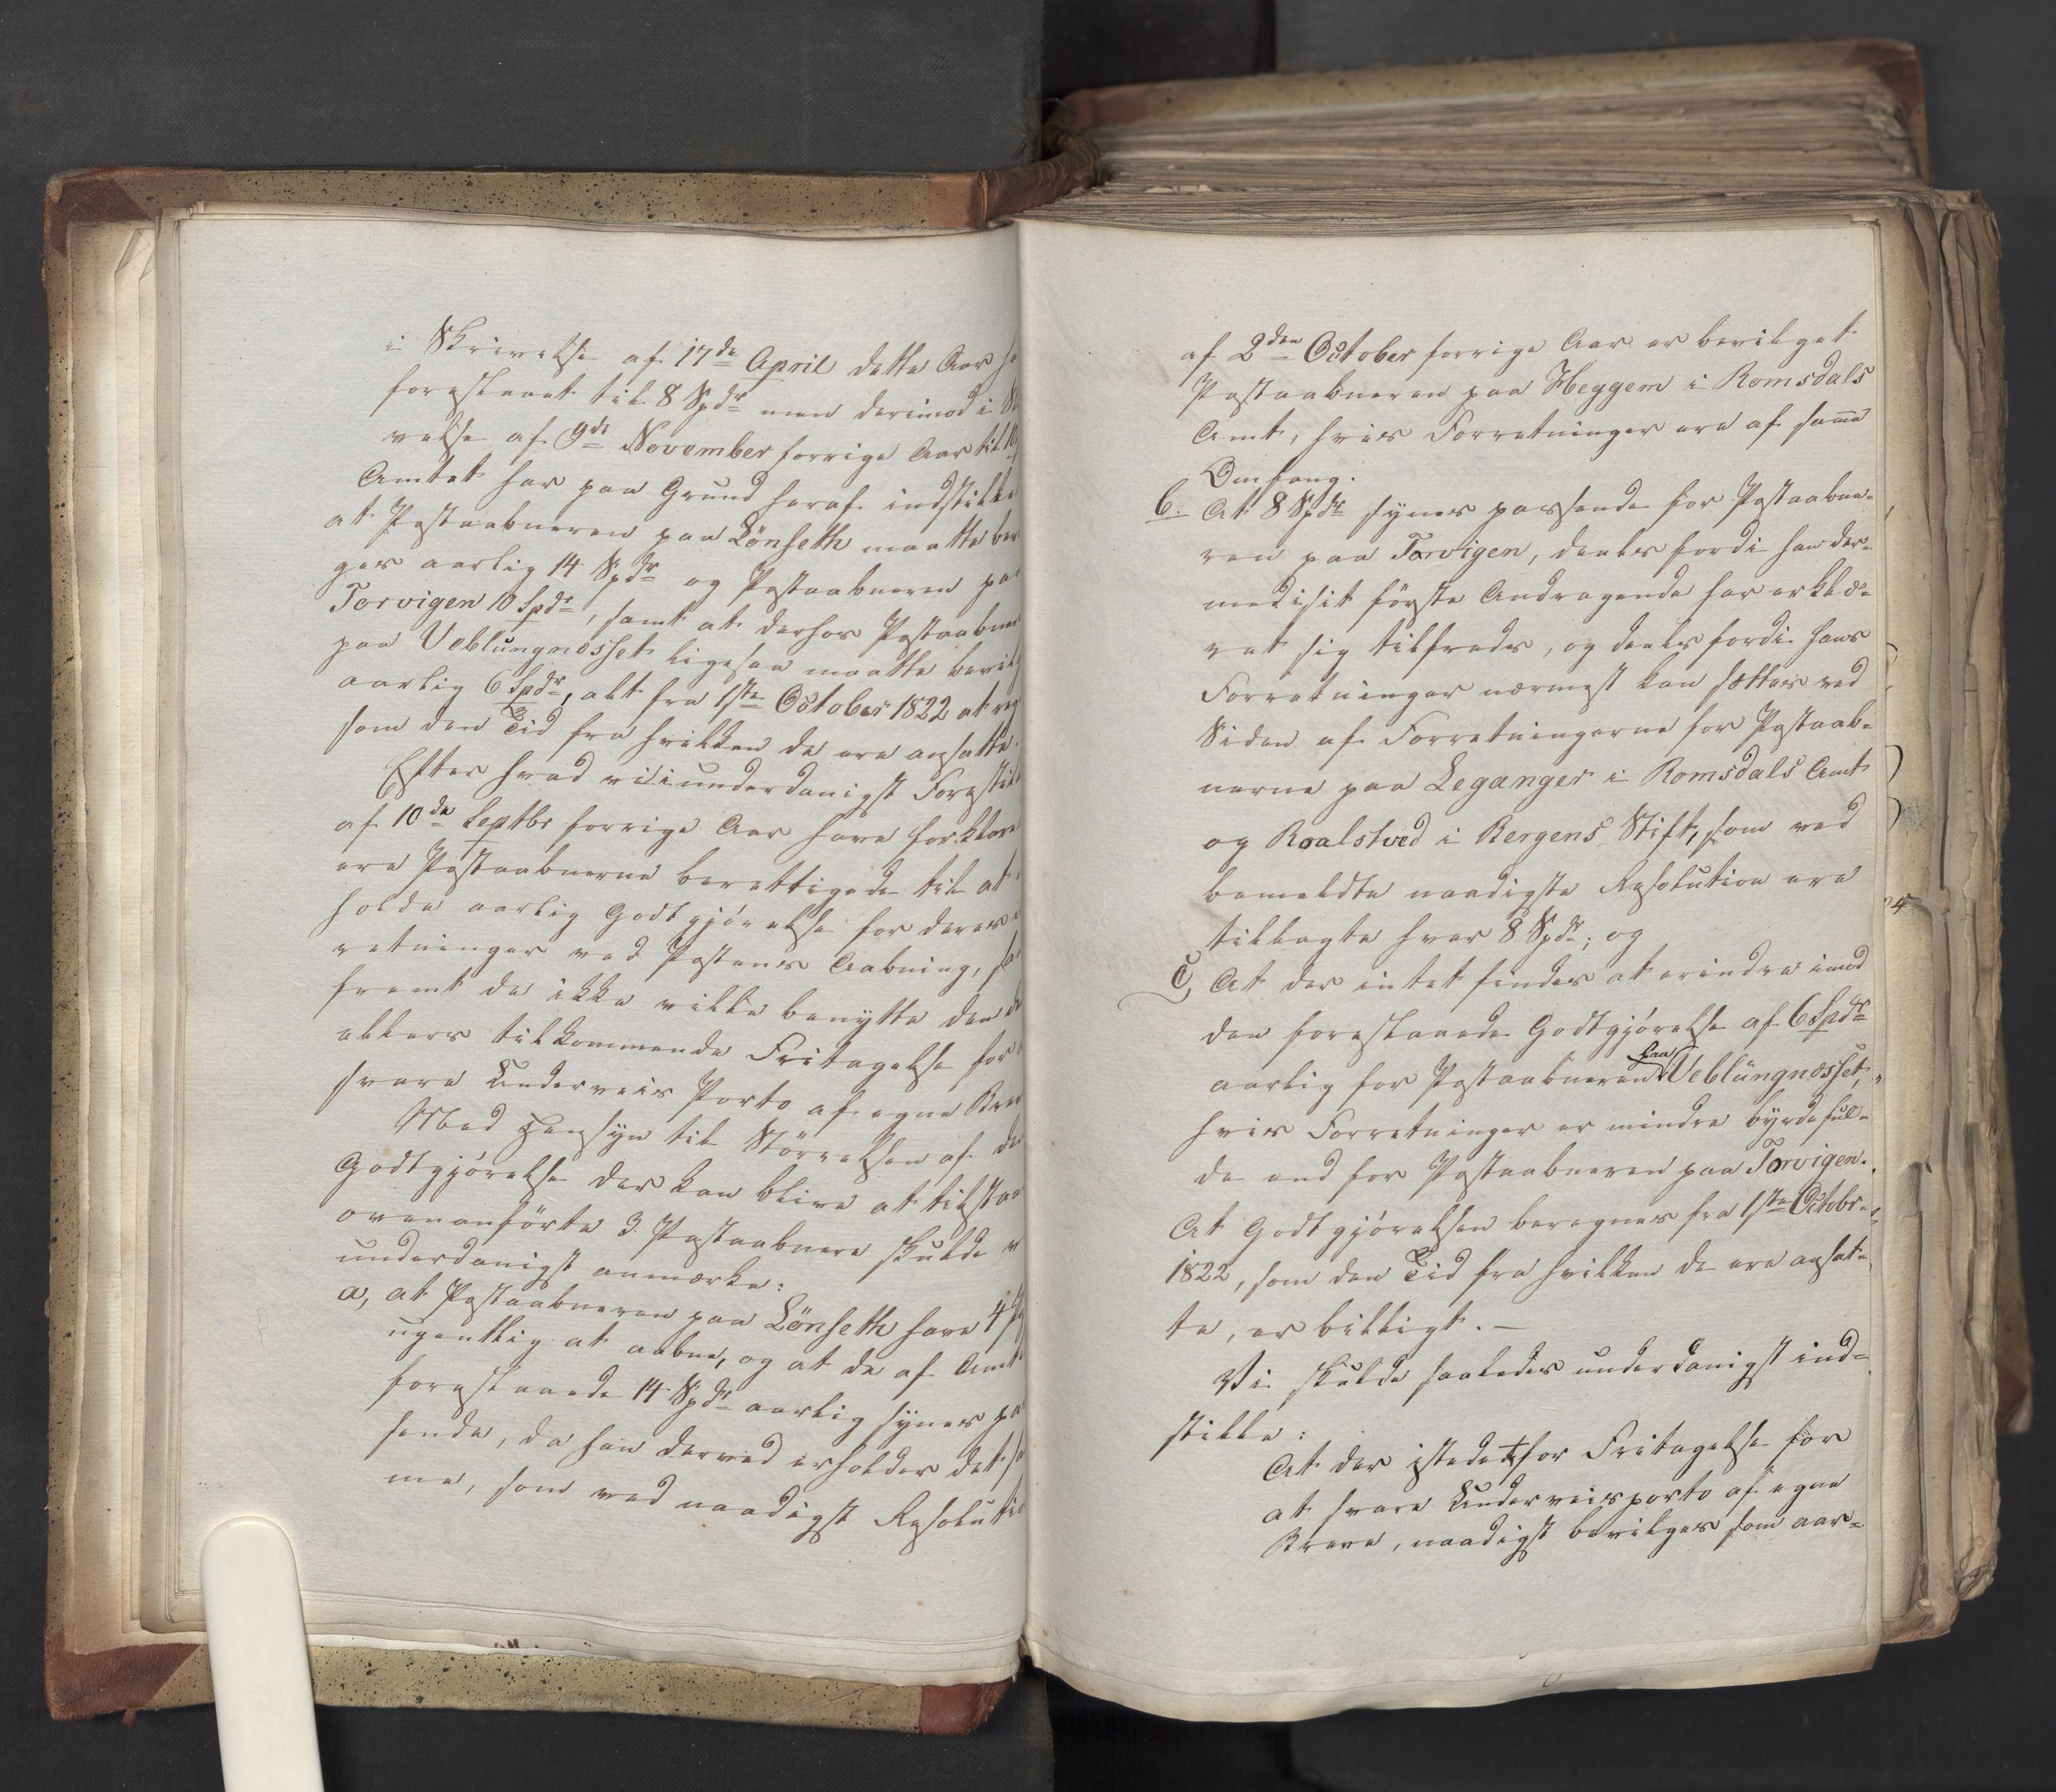 i Skrivelse af 17de April dette Aar ha
foreslaaet til 8 Spdr men derimod i Sk
velse af 9de November forrige Aar til 10
Amtet har paa Grund heraf indstillet
at Postaabneren paa Lönseth maatte bevil
ges aarlig 14 Spdr og Postaabneren paa
Torvigen 10 Spdr, samt at derhos Postaabner
paa Veblungnæsset ligesaa maatte bevilg
aarlig 6 Spdr, alt fra 1ste October 1822 at reg
som den Tid fra hvilken de ere ansatte.
Efter hvad vi i underdanigst Forestill
af 10de Septbr forrige Aar have forklaret
ere Postaabnerne berettigede til at
holde aarlig Godtgjörelse for deres
retninger ved Postens Aabning, saa
fremt de ikke ville benytte den de
ellers tilkommende Fritagelse for
svare Underveis Porto af egne Breve
Med Hensyn til Störrelsen af de
Godtgjörelse der kan blive at tilstaae
ovenanförte 3 Postaabnere skulde v
underdanigst anmærke:
a, at Postaabneren paa Lönseth have 4
ugentlig at aabne, og at de af Amtet
foreslaaede 14 Spdr aarlig synes pas
sende, da han derved erholder det sa
me, som ved naadigst Resolution
af 2den October forrige Aar er bevilget
Postaabneren paa Heggem i Romsdals
Amt, hvis Forretninger ere af samme
Omfang.
b. At 8 Spdr synes passende for Postaabne-
ren paa Torvigen, deels fordi han der-
med i sit förste Andragende har erklæ-
ret sig tilfreds, og deels fordi hans
Forretninger nærmest kan sættes ved
Siden af Forretningerne for Postaab-
nerne paa Leganger i Romsdals Amt
og Roalstved i Bergens Stift, som ved
bemeldte naadigste Resolution ere
tillagte hver 8 Spdr; og
c, At der intet findes at erindre imod
den foreslaaede Godtgjörelse af 6 Spdr
aarlig for Postaabneren paa Veblungnæsset,
hvis Forretninger er mindre byrdeful-
de end for Postaabneren paa Torvigen.
At Godtgjörelsen beregnes fra 1ste Octobr
1822, som den Tid fra hvilken de ere ansat-
te, er billigt. —
Vi skulde saaledes underdanigst ind-
stille:
At der istedetfor Fritagelse for
at svare Underveisporto af egne
Breve, naadigst bevilges som aar-